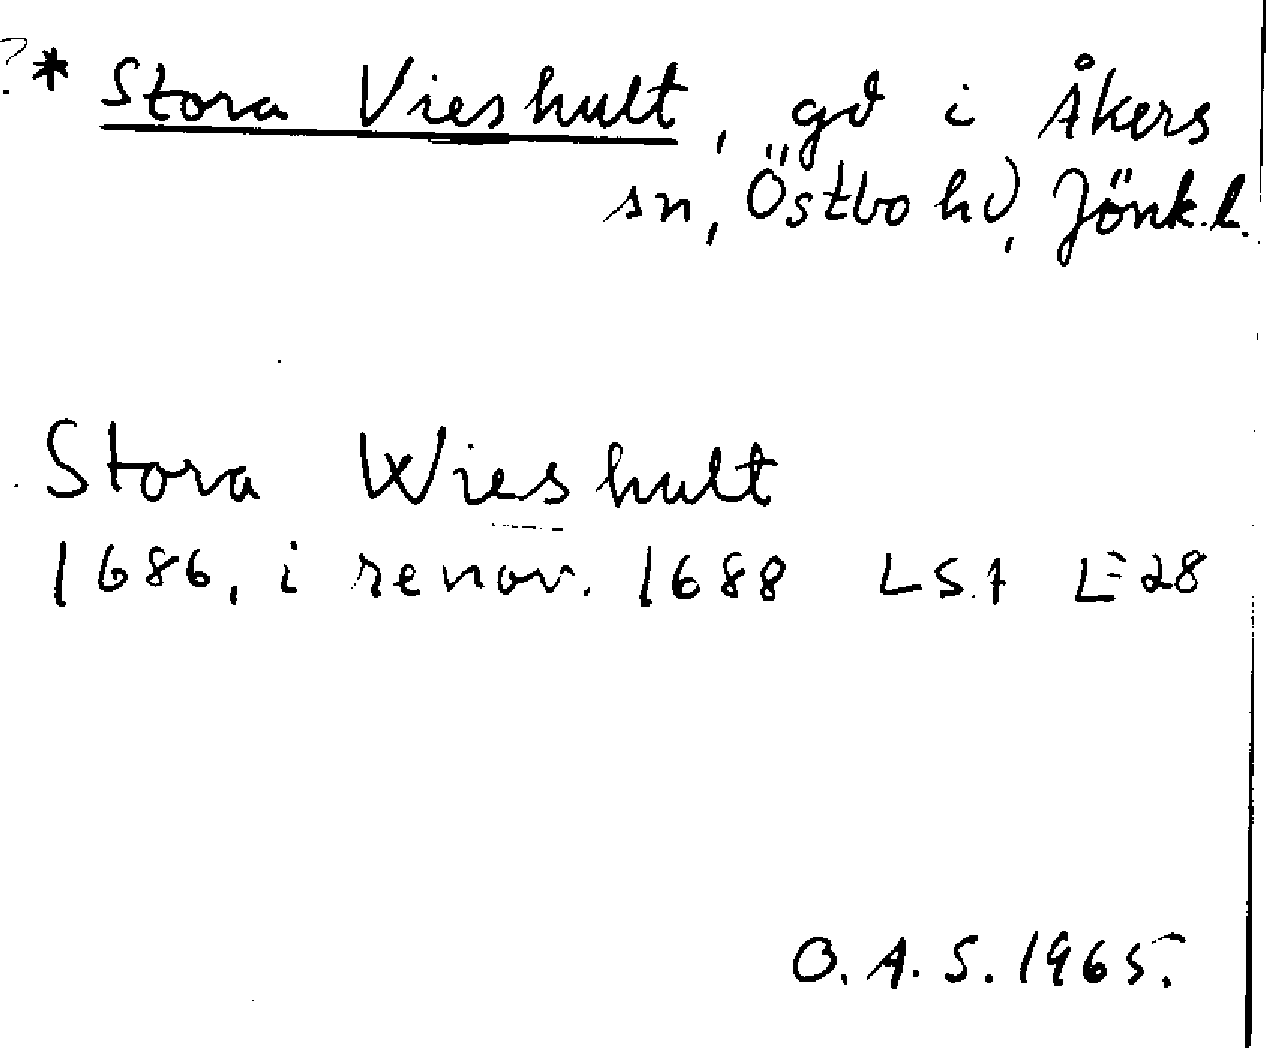 ?* Stora Vieshult, gd i Åkers
sn, Östbo hd, Jönk. l.
Stora Wieshult
1686, i renov. 1688 LSA L 28
O. A. S. 1965.